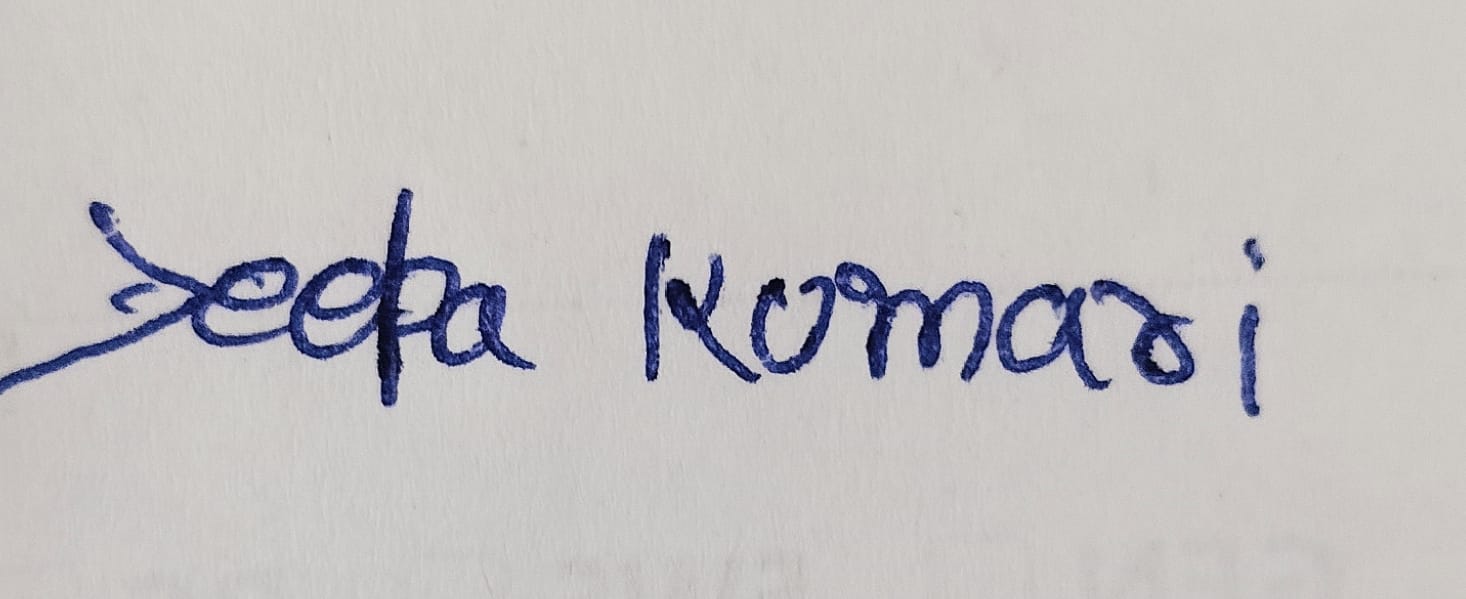 Jeepa Kumari